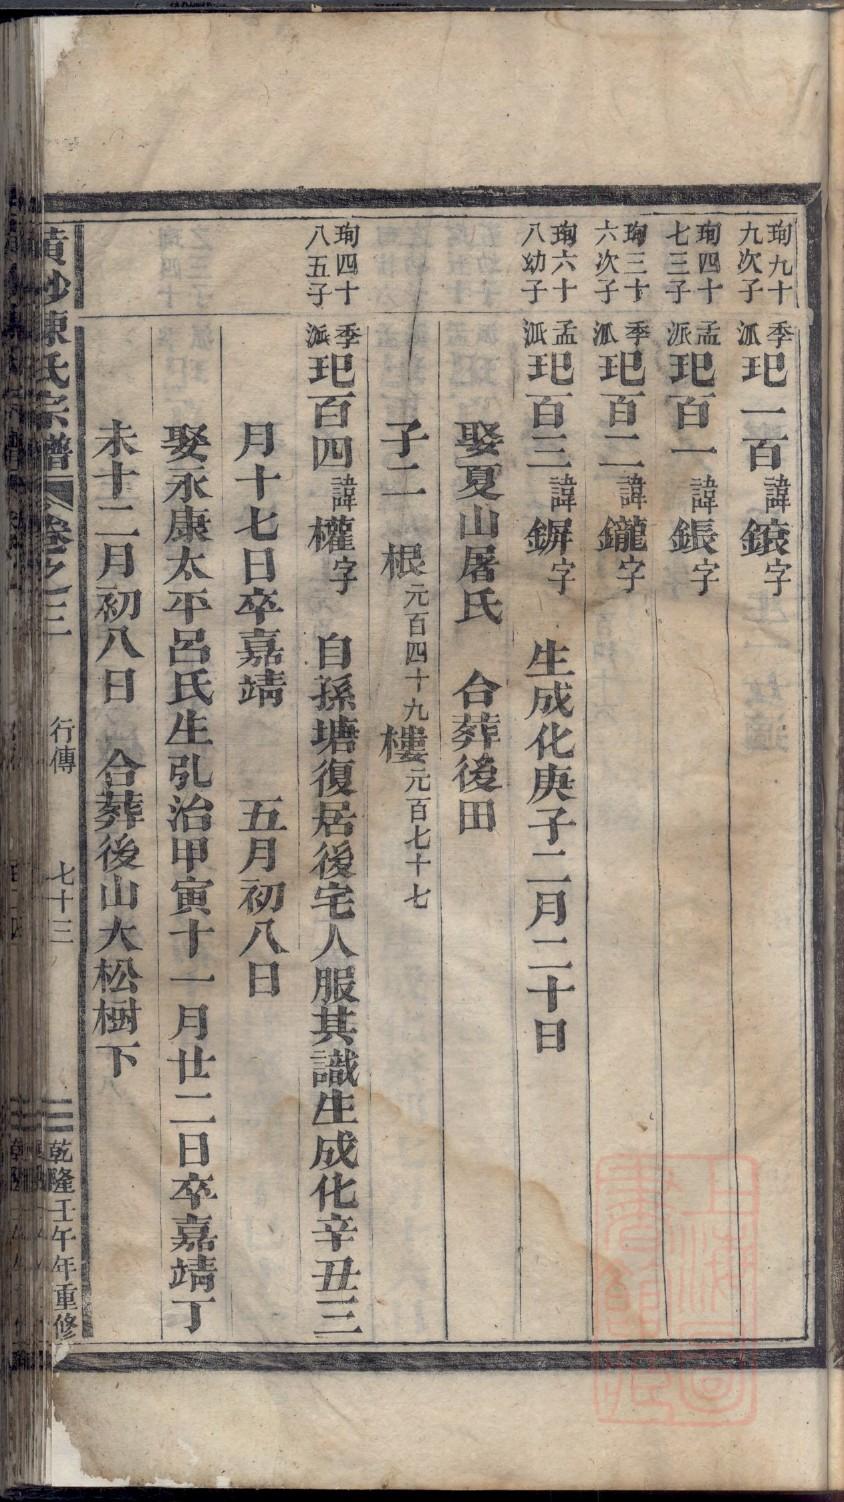 珣九十九次子 季派 玘一百 諱鎄字
珣四十七三子 孟派 玘百一 諱鋹字
珣三十六次子 季派 玘百二 諱鑨字
珣六十八幼子 孟派 玘百三 諱鋿字 生成化庚子二月二十日
娶夏山屠氏 合葬後田
子二 根元百四十九 樓元百七十七
珣四十八五子 季派 玘百四 諱權字 自孫塘復居後宅人服其識生成化辛丑三
月十七日卒嘉靖 五月初八日
娶永康太平呂氏生弘治甲寅十一月廿二日卒嘉靖丁
未十二月初八日 合葬後山大松樹下
陳氏宗譜 卷之三 行傳 七十三 乾隆壬午年重修
上海圖書館藏